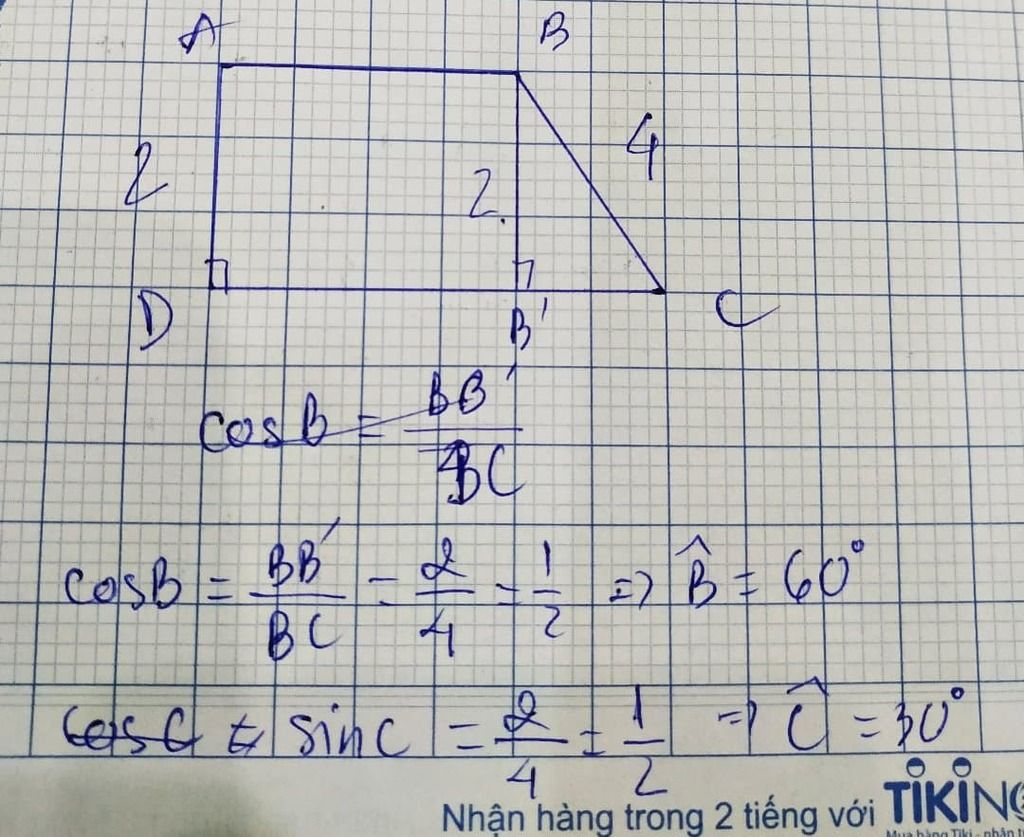 A B
2 2 4
D B' C
cos B = BB' / BC
cosB = BB' / BC = 2/4 = 1/2 => B̂ = 60°
sinC = 2/4 = 1/2 => Ĉ = 30°
Nhận hàng trong 2 tiếng với TIKING
Mua hàng Tiki - nhận